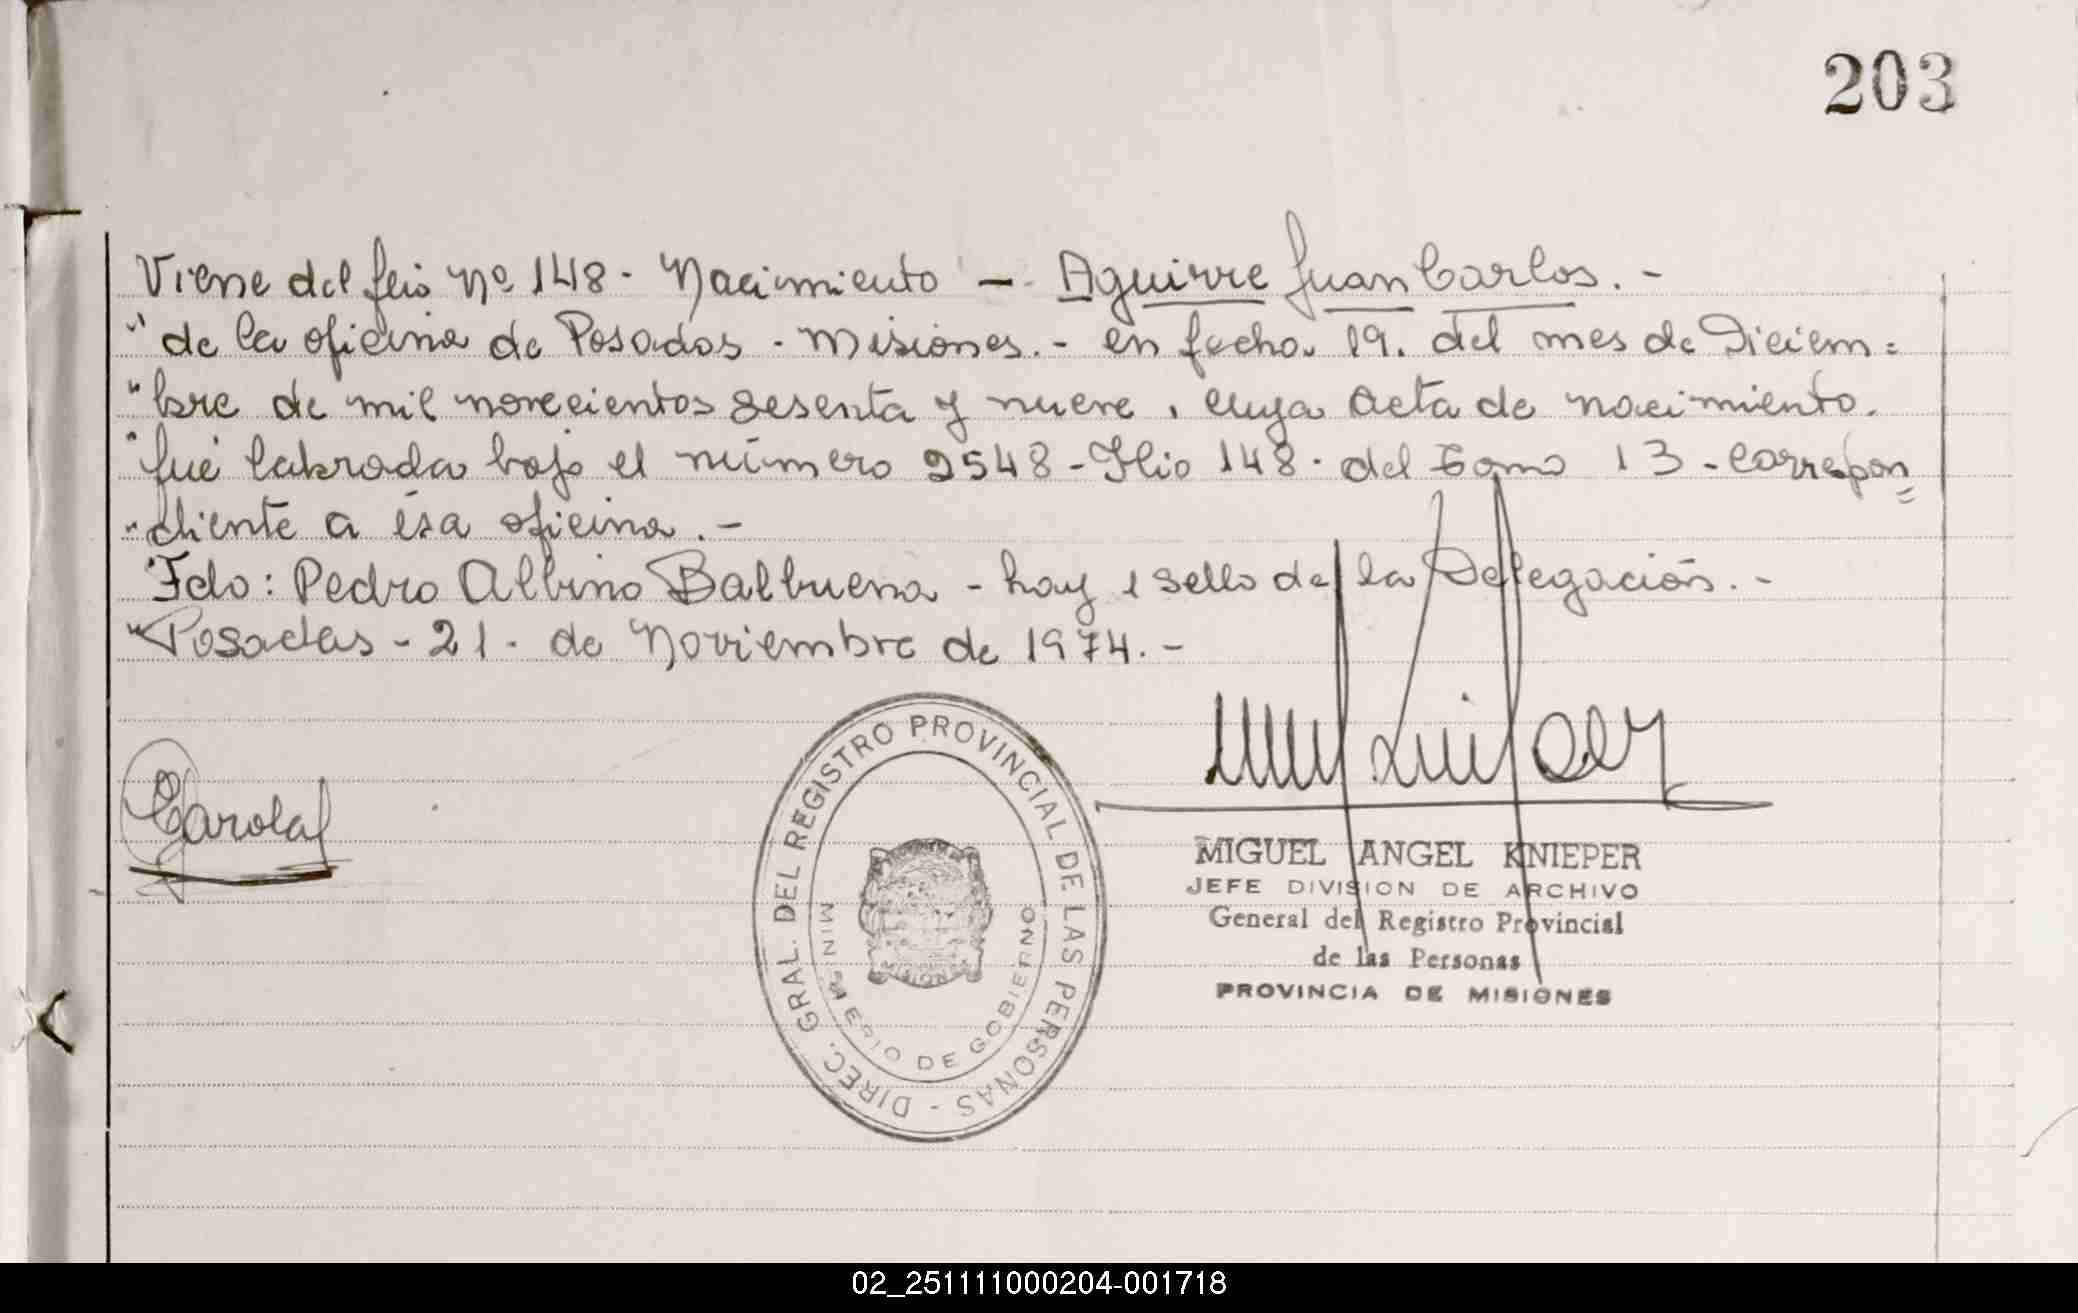 203
Viene del flio Nº 148 - Nacimiento - Aguirre Juan Carlos. -
" de la oficina de Posadas - Misiones. - en fecha 19. del mes de Diciem=
" bre de mil novecientos sesenta y nueve, cuya acta de nacimiento.
" fué labrada bajo el número 2548 - Flio 148 - del Tomo 13 - correspon=
" diente a ésa oficina. -
" Fdo: Pedro Albino Balbuena - hay 1 sello de la Delegación. -
" Posadas - 21 - de Noviembre de 1974. -
DIREC. GRAL. DEL REGISTRO PROVINCIAL DE LAS PERSONAS -
MINISTERIO DE GOBIERNO
MISIONES
Carola
MIGUEL ANGEL KNIEPER
JEFE DIVISION DE ARCHIVO
General del Registro Provincial
de las Personas
PROVINCIA DE MISIONES
02_251111000204-001718